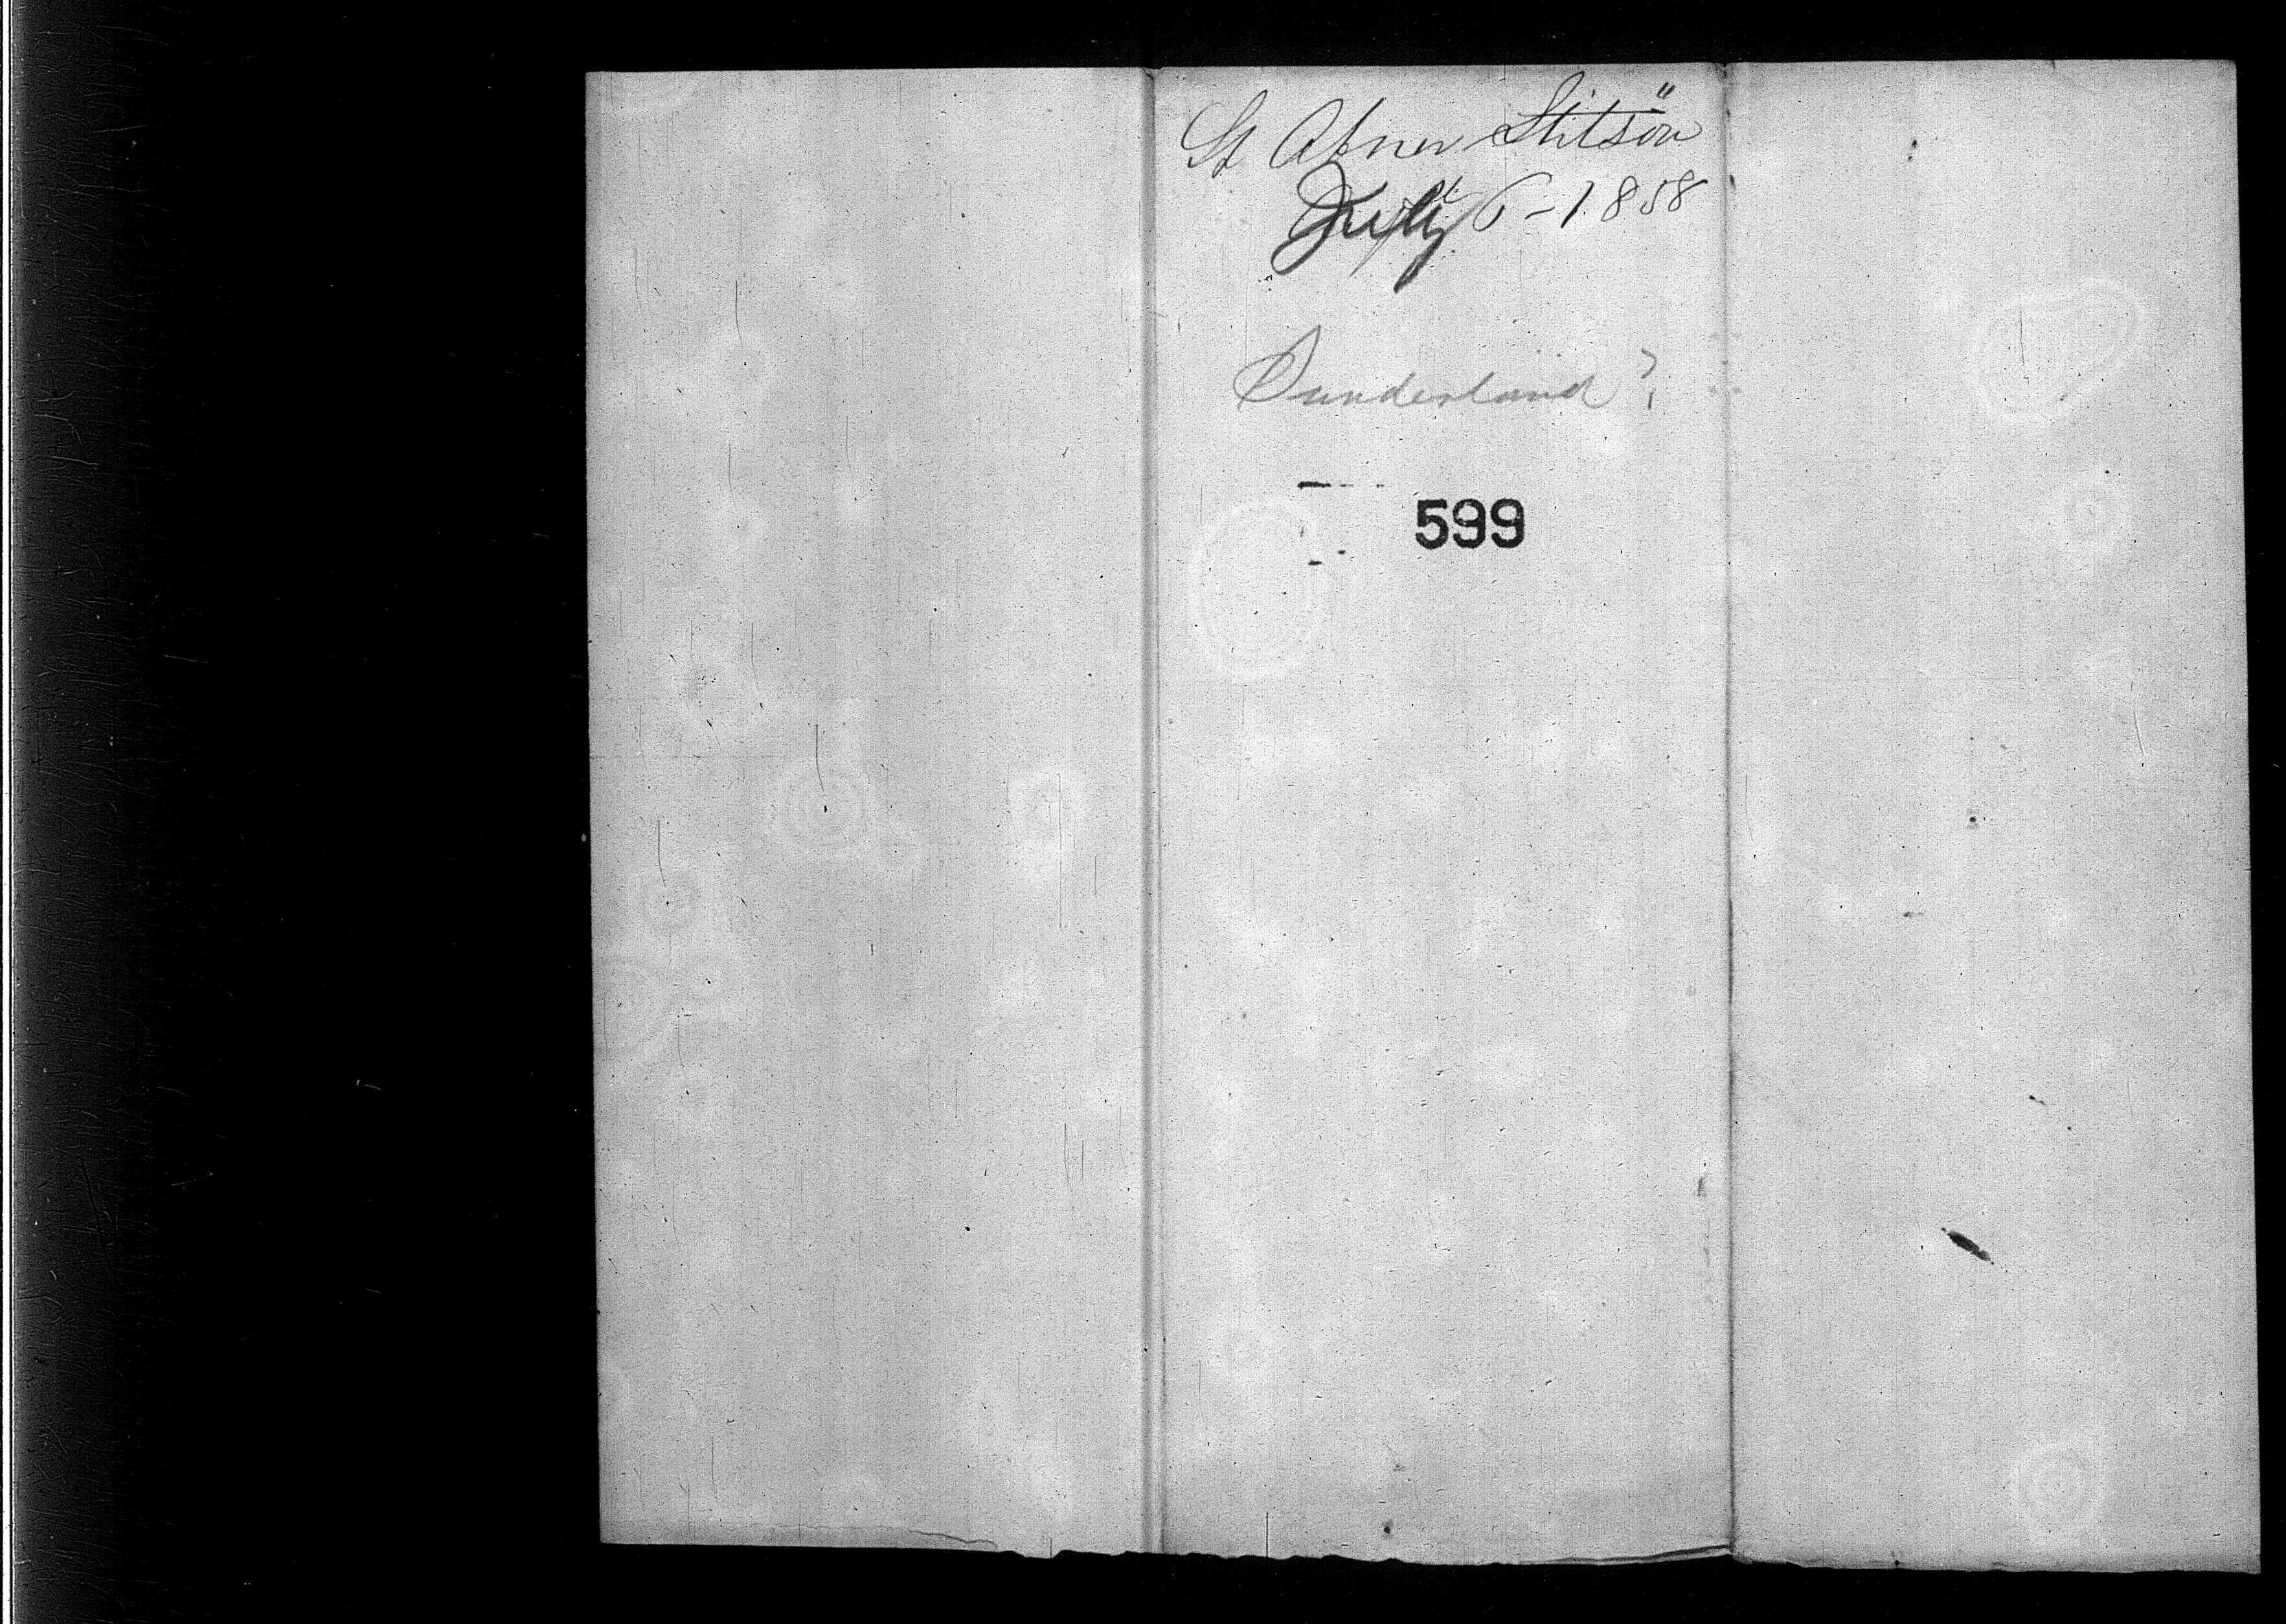 St Abner Stitson
July 6 - 1858
Sunderland?
599